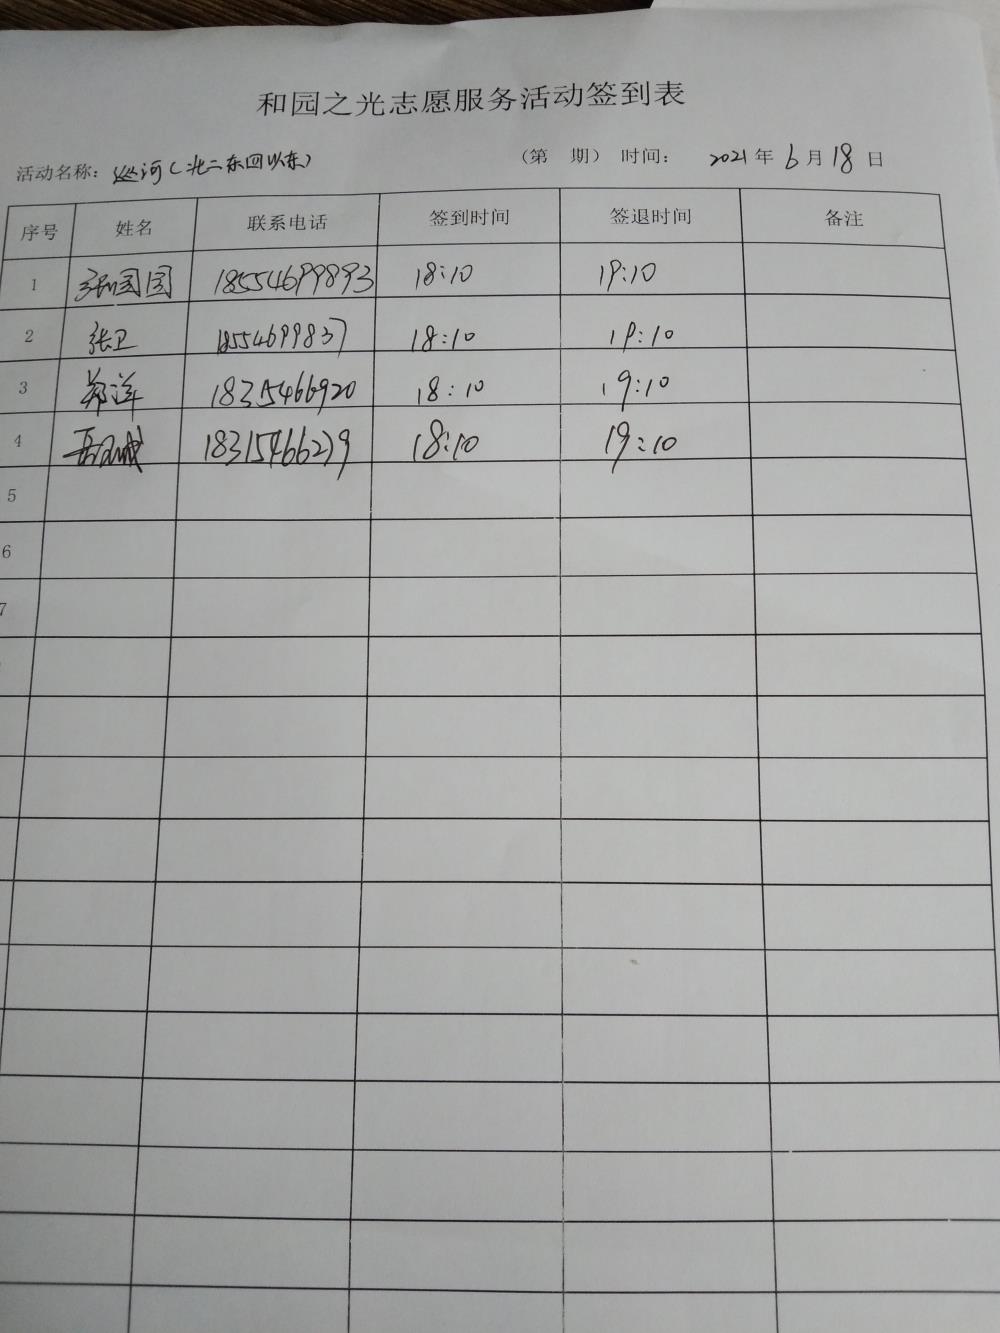 和园之光志愿服务活动签到表
活动名称: 巡河(北二东四以东) （第 期） 时间: 2021 年 6 月 18 日
序号 姓名 联系电话 签到时间 签退时间 备注
1 张国国 18554699893 18:10 19:10
2 张卫 18554699837 18:10 19:10
3 郑洋 18315466920 18:10 19:10
4 18315466279 18:10 19:10
5
6
7